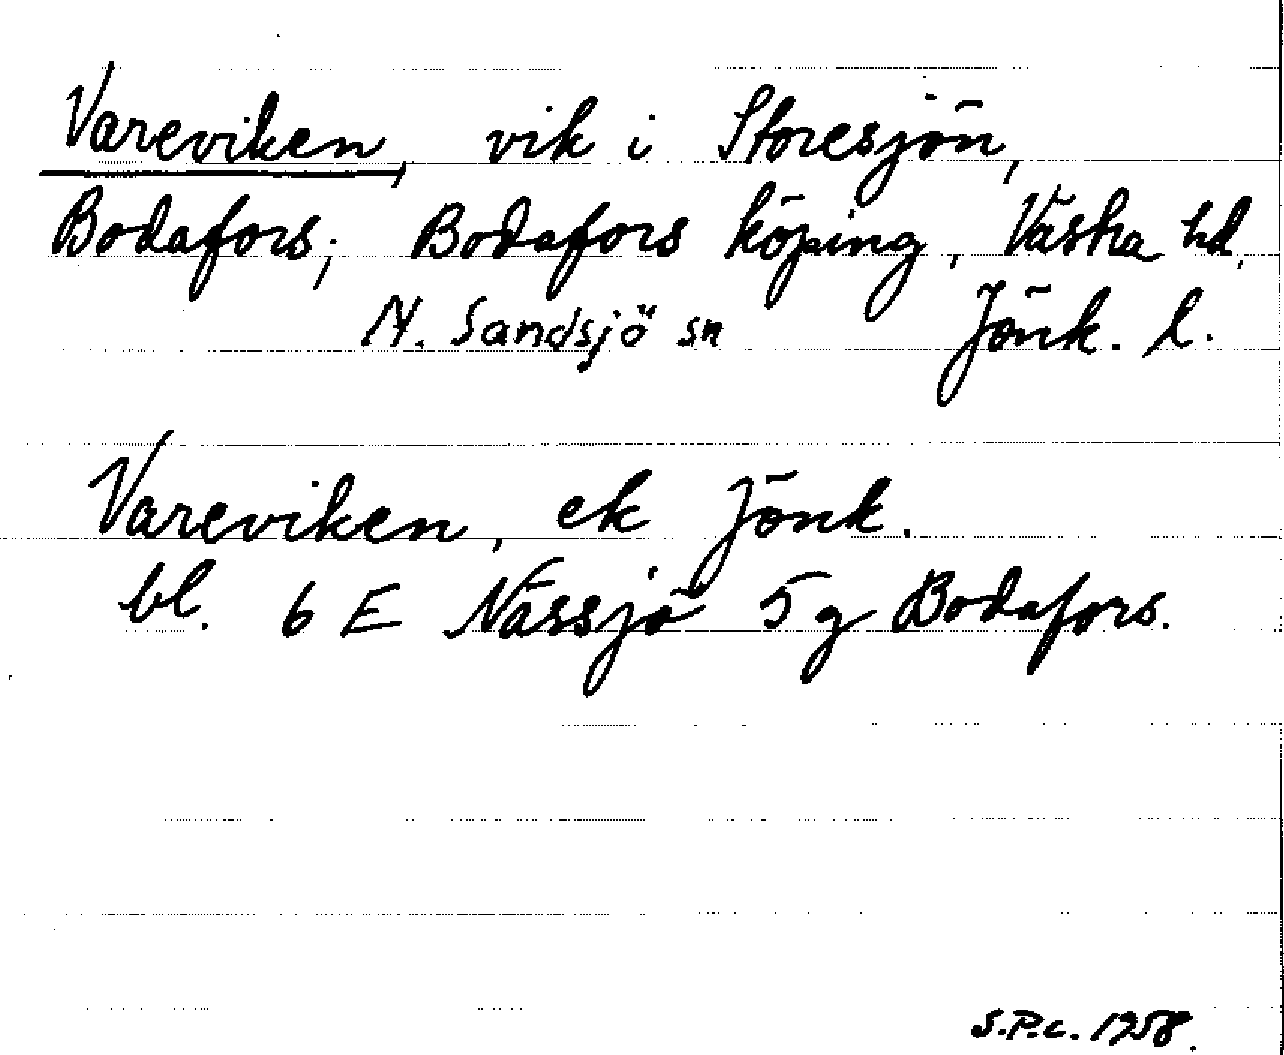 Vareviken, vik i Storesjön,
Bodafors; Bodafors köping, Västra hd,
N. Sandsjö sn Jönk. l.
Vareviken, ek Jönk.
bl. 6 E Nässjö 5 g Bodafors.
S.P.c. 1958.